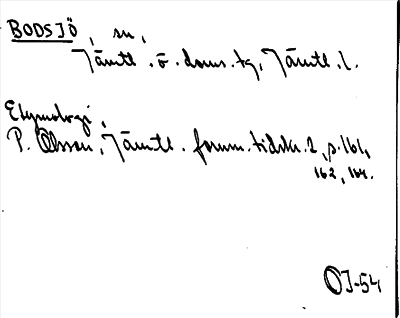 BODSJÖ, sn,
Jämtl. ö. doms. tg, Jämtl. l.
Etymologi,
P. Olsson, Jämtl. fornm. tidskr. 2, p. 161,
162, 164.
OJ-54